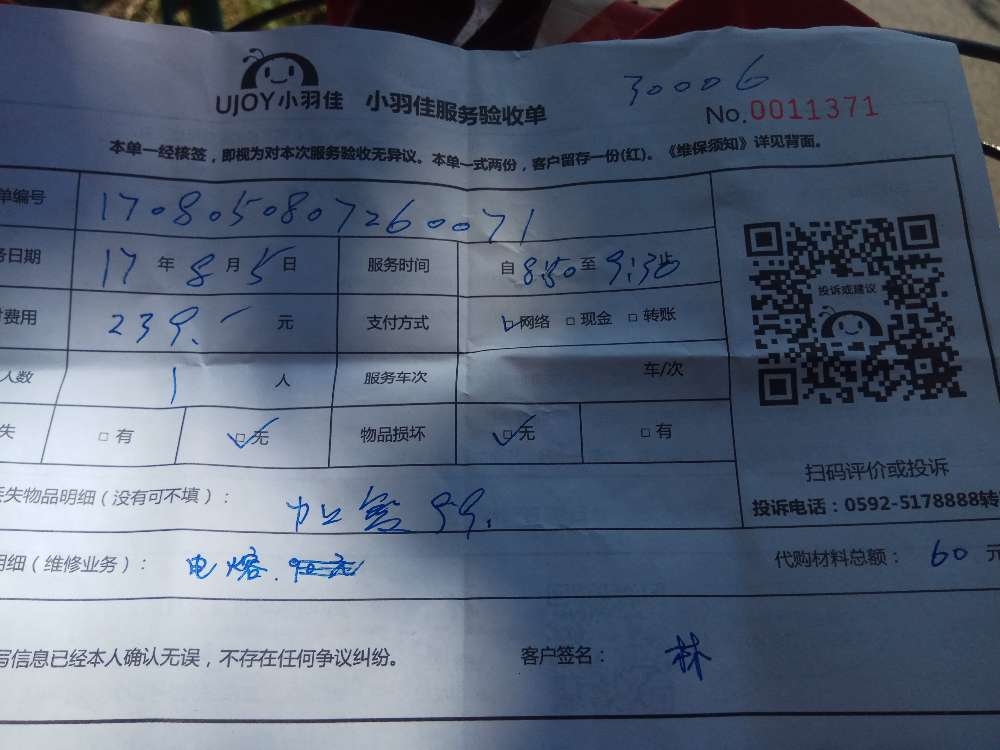 30006
UJOY小羽佳 小羽佳服务验收单 No.0011371
本单一经核签，即视为对本次服务验收无异议。本单一式两份，客户留存一份(红)。《维保须知》详见背面。
单编号 1708050807260071
务日期 17 年 8 月 5 日 服务时间 自 8:50 至 9:30 止
费用 239.- 元 支付方式 □网络 □现金 □转账
人数 1 人 服务车次 车/次
失 □有 □无 物品损坏 □无 □有
投诉或建议
扫码评价或投诉
投诉电话：0592-5178888转
丢失物品明细（没有可不填）： 99.
明细（维修业务）： 电熔. 代购材料总额： 60 元
写信息已经本人确认无误，不存在任何争议纠纷。 客户签名： 林